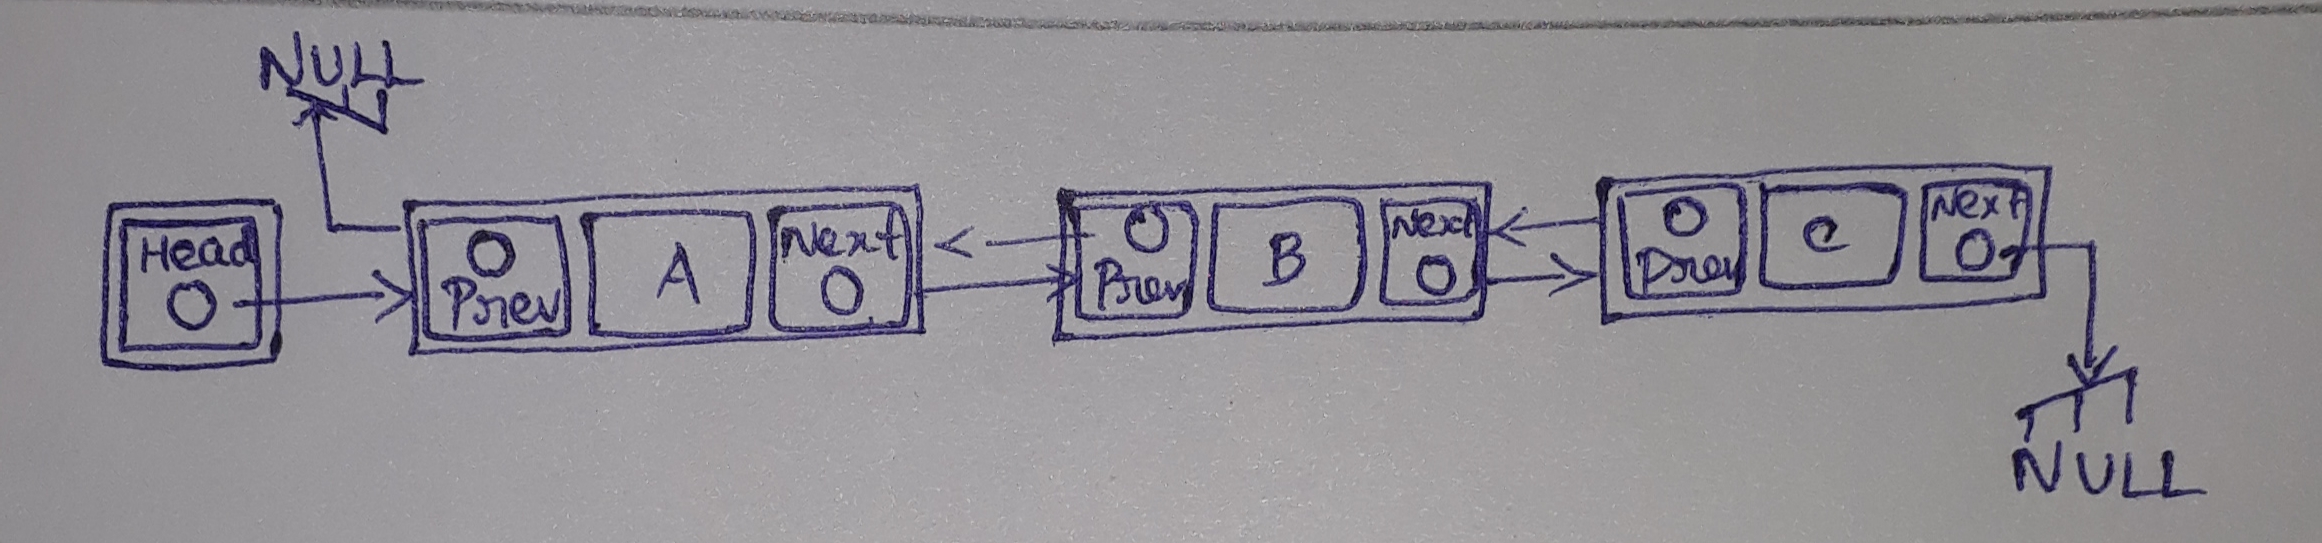 NULL
Head
Prev
A
Next
Prev
B
Next
Prev
C
Next
NULL